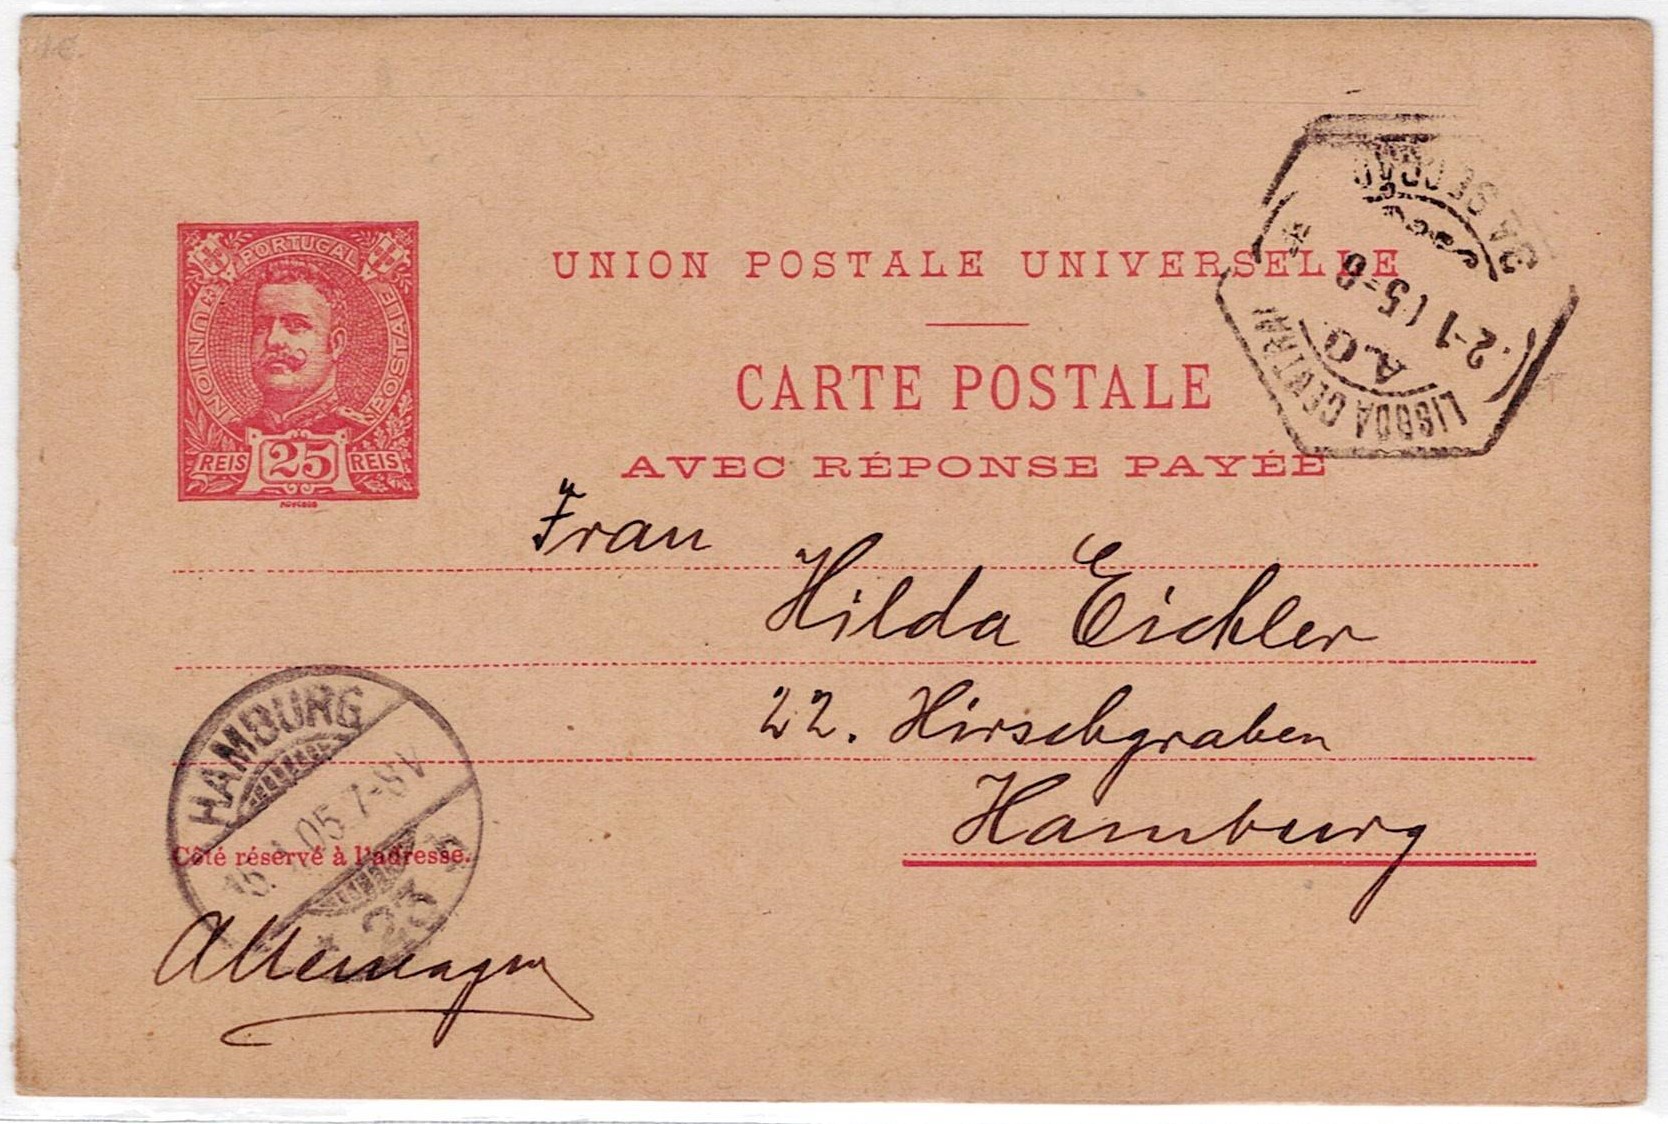 PORTUGAL
UNION POSTALE
REIS 25 REIS
UNION POSTALE UNIVERSELLE
CARTE POSTALE
AVEC RÉPONSE PAYÉE
3A SECCAO
2-1 05-8
A.O
LISBOA CENTRAL
Frau
Hilda Eichler
22. Hirschgraben
Hamburg
HAMBURG
15.1.05.7-8V
* 23 b
Côté réservé à l'adresse.
Allemagne